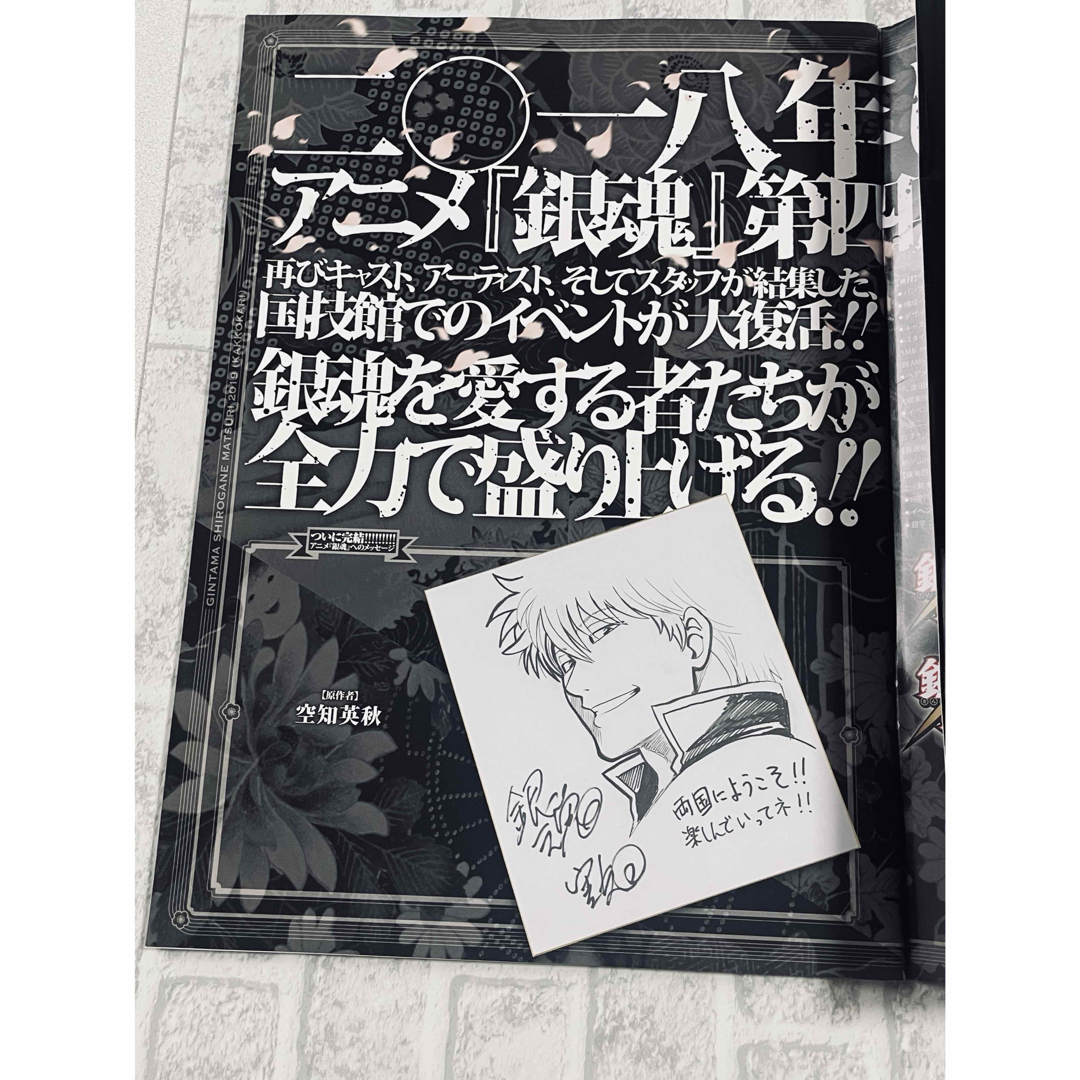 二〇一八年
アニメ『銀魂』第四
再びキャスト、アーティスト、そしてスタッフが結集した、
国技館でのイベントが大復活!!
銀魂を愛する者たちが
全力で盛り上げる!!
GINTAMA SHIROGANE MATSURI 2019 (KAKKOKARI)
ついに完結!!!!!!!!!!
アニメ『銀魂』へのメッセージ
【原作者】
空知英秋
両国にようこそ!!
楽しんでいってネ!!
銀魂
空知